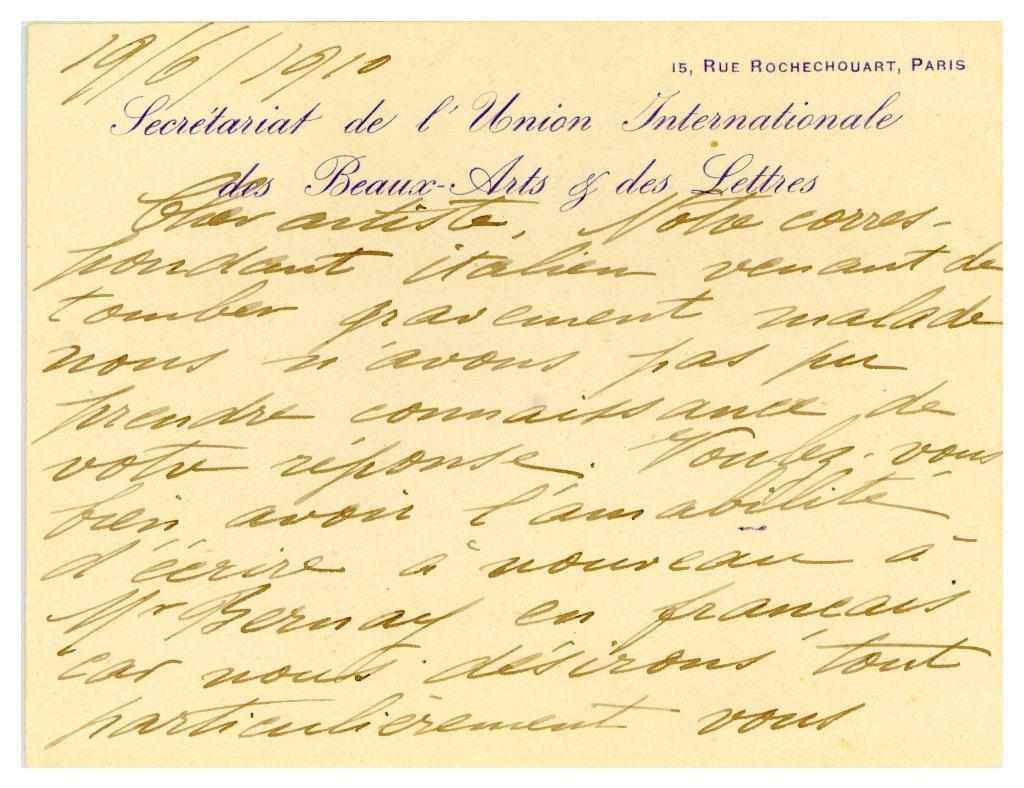 19/6/1910
15, RUE ROCHECHOUART, PARIS
Secrétariat de l'Union Internationale
des Beaux-Arts & des Lettres
Cher artiste, Notre corres-
pondant italien venant de
tomber gravement malade
nous n'avons pas pu
prendre connaissance de
votre réponse. Voulez-vous
bien avoir l'amabilité
d'écrire à nouveau à
Mr Bernay en français
car nous désirons tout
particulièrement vous